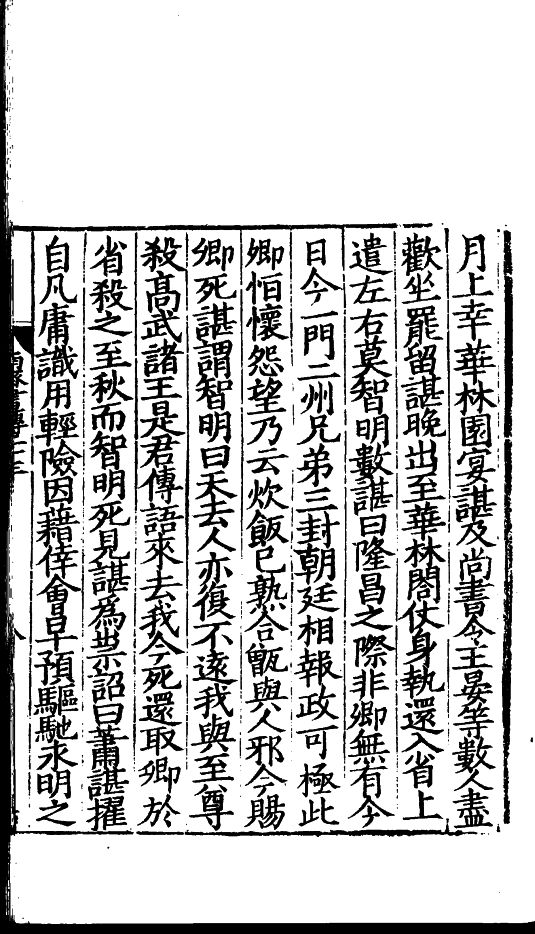 月上幸華林園宴諶及尚書令王晏等數人盡
歡坐罷留諶晚出至華林閤仗身執還入省上
遣左右莫智明數諶曰隆昌之際非卿無有今
日今一門二州兄弟三封朝廷相報政可極此
卿恒懷怨望乃云炊飯已熟合甑與人邪今賜
卿死諶謂智明曰天去人亦復不遠我與至尊
殺高武諸王是君傳語來去我今死還取卿於
省殺之至秋而智明死見諶爲祟詔曰蕭諶擢
自凡庸識用輕險因藉倖會昌干預驅馳永明之